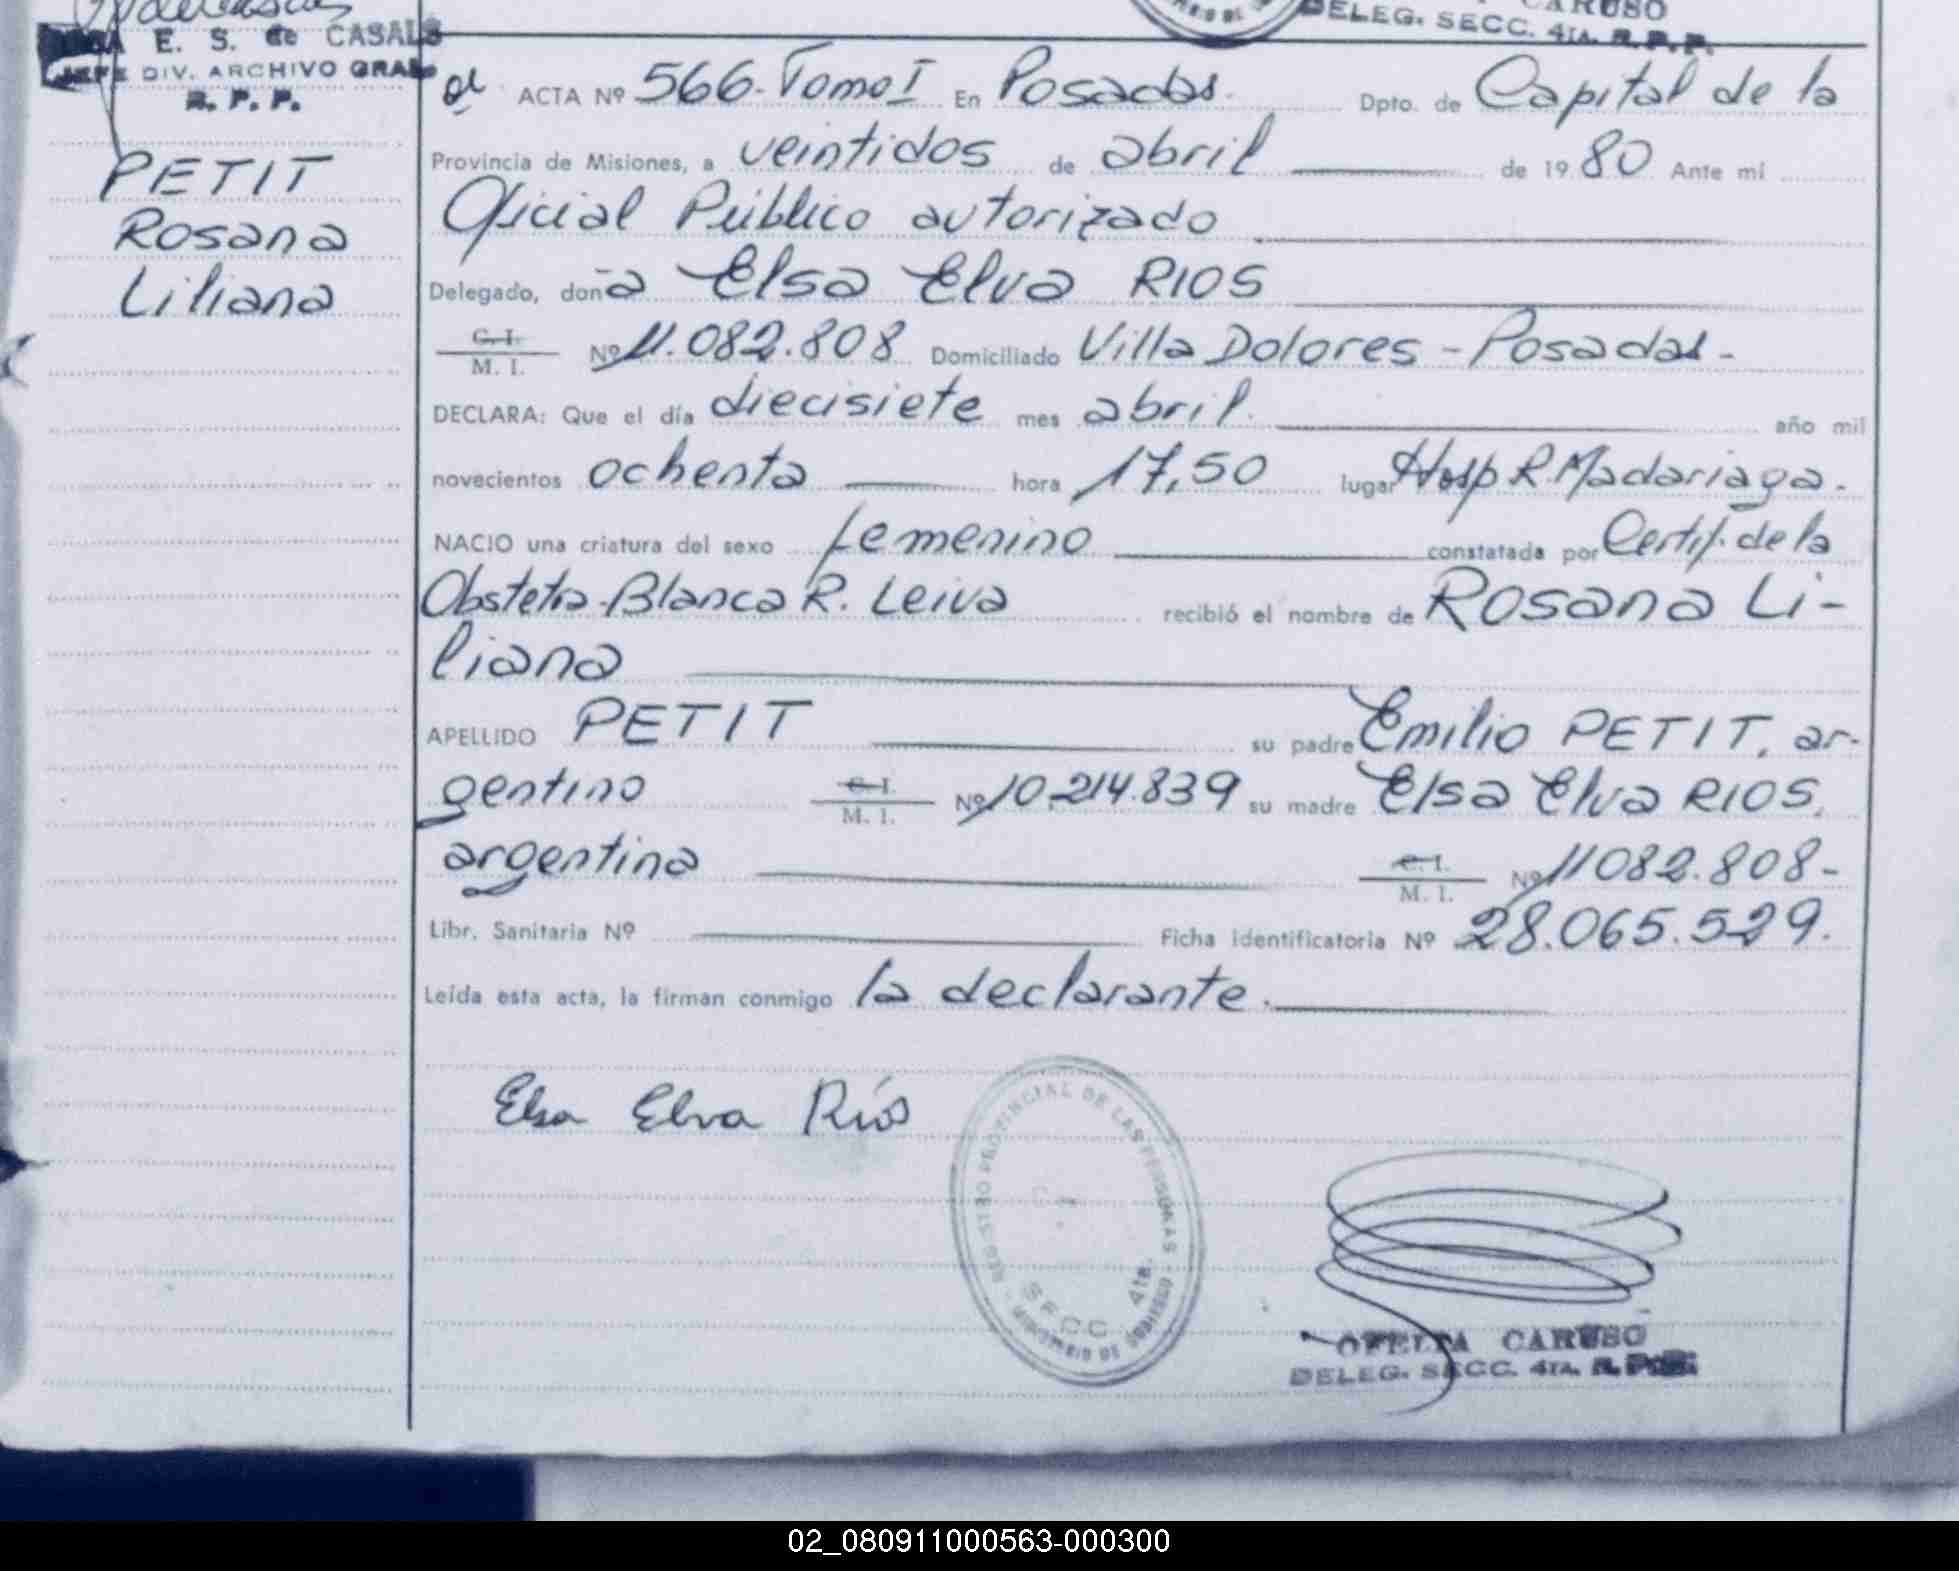 CARUSO
DELEG. SECC. 4TA. R. P. P.
E. S. de CASALS
JEFE DIV. ARCHIVO GRAL
R. P. P.
PETIT
Rosana
Liliana
ACTA Nº 566. Tomo I En Posadas. Dpto. de Capital de la
Provincia de Misiones, a veintidos de abril de 1980 Ante mí
Oficial Público autorizado
Delegado, doña Elsa Elva RIOS
C. I.
M. I. Nº 11.082.808 Domiciliado Villa Dolores - Posadas -
DECLARA: Que el día diecisiete mes abril. año mil
novecientos ochenta hora 17,50 lugar Hosp R. Madariaga.
NACIO una criatura del sexo femenino constatada por Certif. de la
Obstetra. Blanca R. Leiva recibió el nombre de Rosana Li-
liana
APELLIDO PETIT su padre Emilio PETIT, ar-
gentino C. I. M. I. Nº 10.214.839 su madre Elsa Elva RIOS,
argentina C. I. M. I. Nº 11082.808-
Libr. Sanitaria Nº Ficha identificatoria Nº 28.065.529.
Leída esta acta, la firman conmigo la declarante.
Elsa Elva Ríos
REGISTRO PROVINCIAL DE LAS PERSONAS - MINISTERIO DE GOBIERNO
SECC. 4ta.
OFELIA CARUSO
DELEG. SECC. 4TA. R. P. P.
02_080911000563-000300